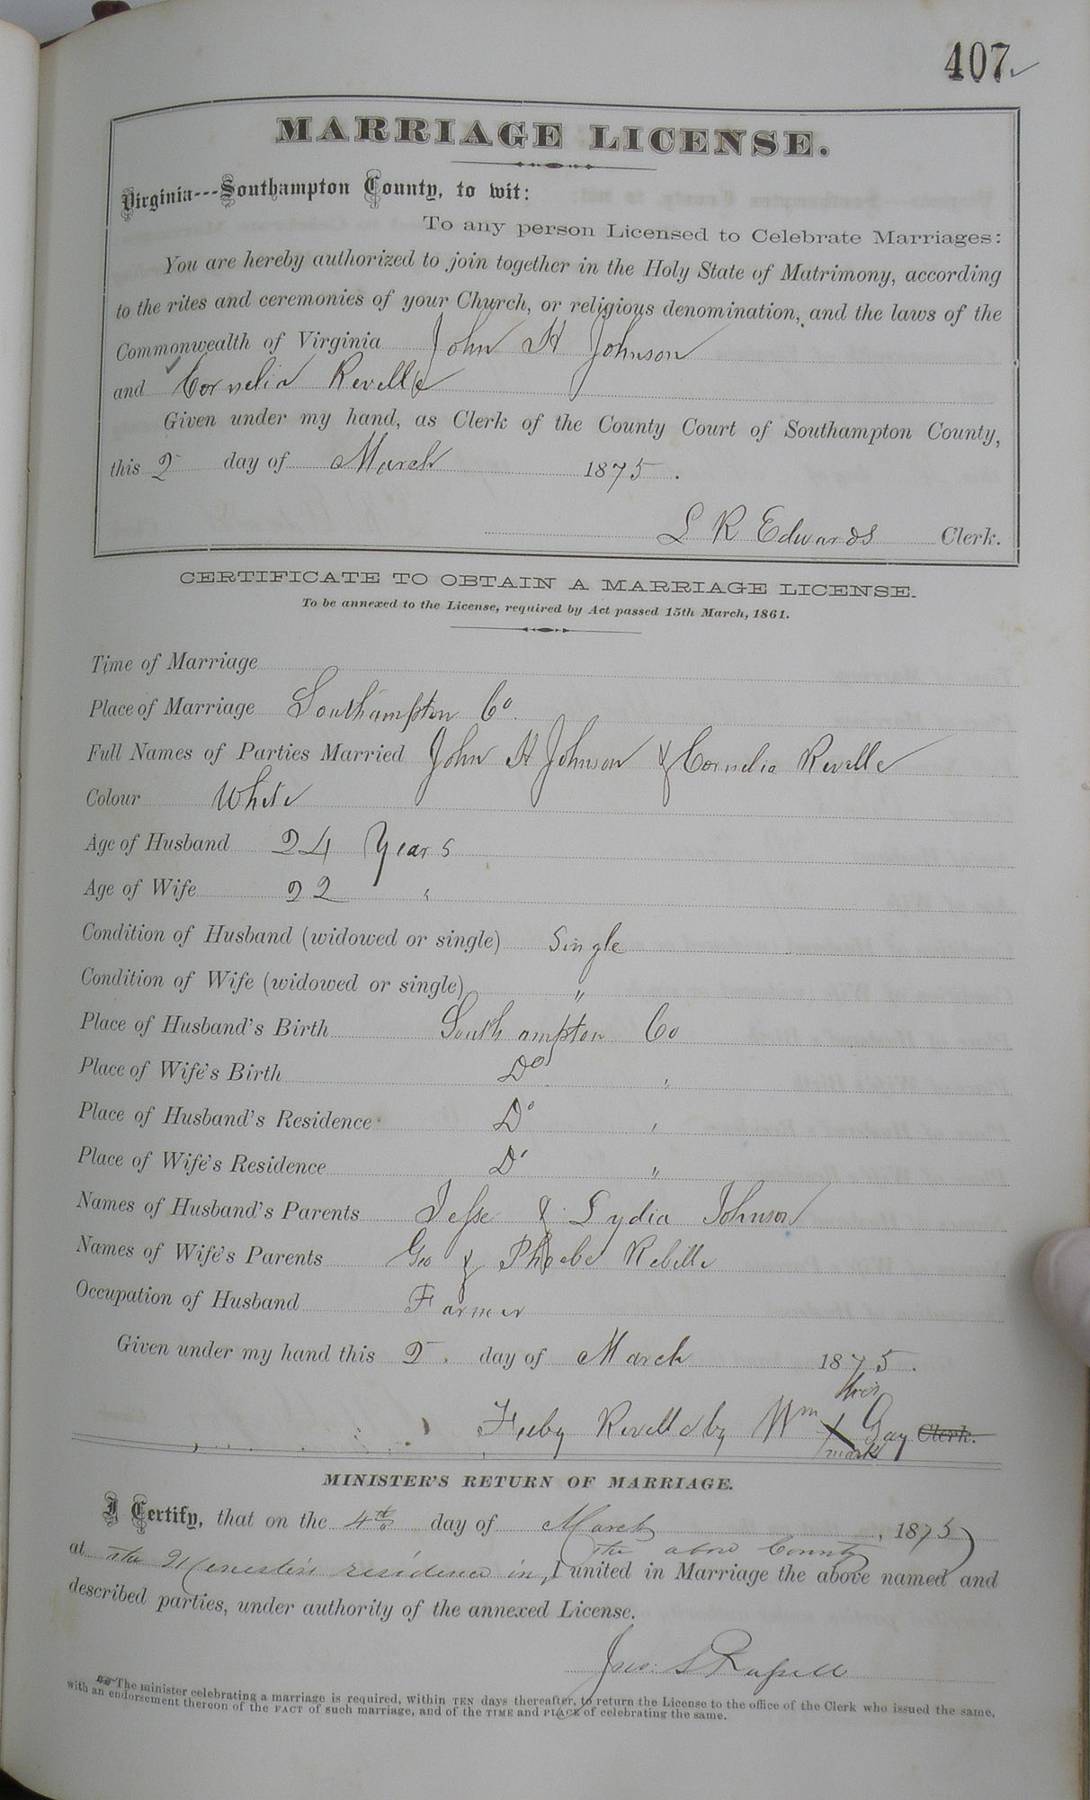 407
MARRIAGE LICENSE.
Virginia---Southampton County, to wit:
To any person Licensed to Celebrate Marriages:
You are hereby authorized to join together in the Holy State of Matrimony, according
to the rites and ceremonies of your Church, or religious denomination, and the laws of the
Commonwealth of Virginia John H Johnson
and Cornelia Revelle
Given under my hand, as Clerk of the County Court of Southampton County,
this 2 day of March 1875.
L R Edwards Clerk.
CERTIFICATE TO OBTAIN A MARRIAGE LICENSE.
To be annexed to the License, required by Act passed 15th March, 1861.
Time of Marriage
Place of Marriage Southampton Co.
Full Names of Parties Married John H Johnson & Cornelia Revelle
Colour White
Age of Husband 24 Years
Age of Wife 22 "
Condition of Husband (widowed or single) Single
Condition of Wife (widowed or single) "
Place of Husband's Birth Southampton Co
Place of Wife's Birth Do "
Place of Husband's Residence Do "
Place of Wife's Residence Do "
Names of Husband's Parents Jesse & Lydia Johnson
Names of Wife's Parents Geo & Phoebe Rebelle
Occupation of Husband Farmer
Given under my hand this 2. day of March 1875.
his
Feeby Revell by Wm X Gay Clerk.
mark
MINISTER'S RETURN OF MARRIAGE.
I Certify, that on the 4th day of March, 1875
the above County
at the residence in, I united in Marriage the above named and
described parties, under authority of the annexed License.
The minister celebrating a marriage is required, within TEN days thereafter, to return the License to the office of the Clerk who issued the same,
with an endorsement thereon of the FACT of such marriage, and of the TIME and PLACE of celebrating the same.